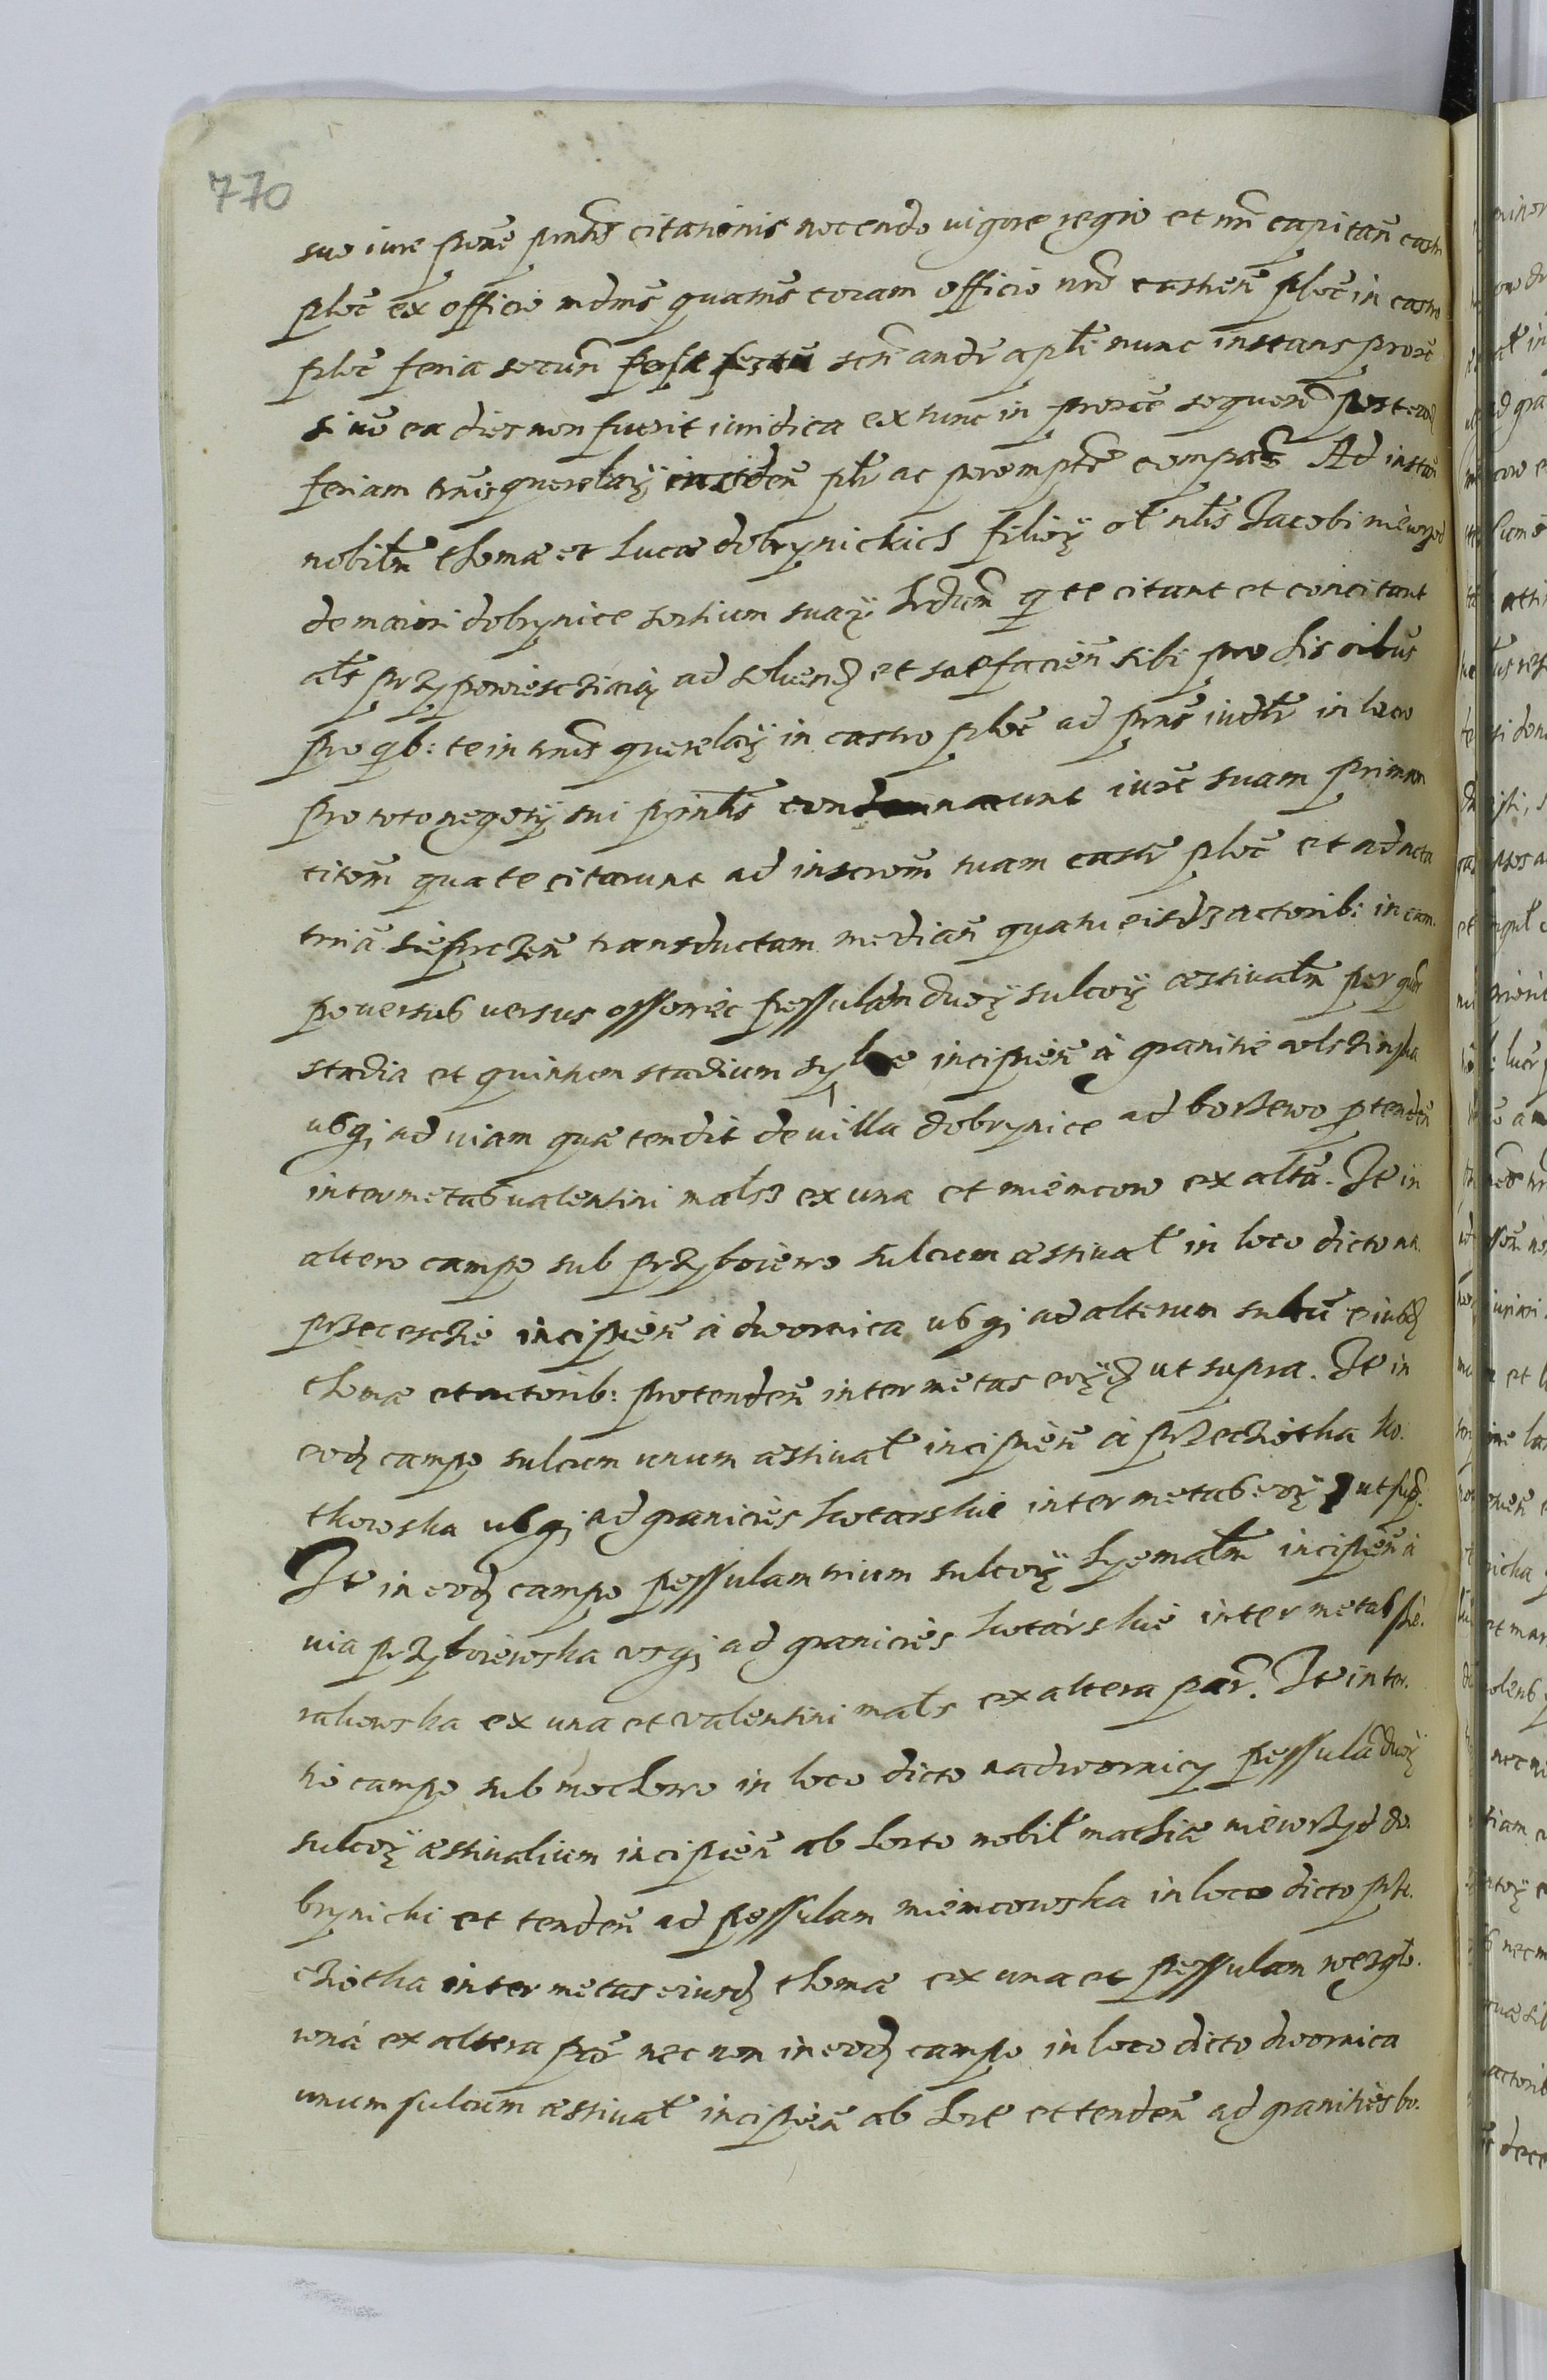 770
suo iure prone pnntis citationis nocendo vigore regio et nri capitan castr
ploc ex officio mdms quatus coram officio nro castren ploc in castro
ploc feria secun post festu scti andr apli nunc instans prox
si vo ea dies non fuerit iuridica extunc in proxe sequen post eand
feriam trnis querelaȝ inciden pltr ac peremptre compas Ad instan
nobilm thomæ et lucæ dobrynickich filioȝ ol nlis Jacobi niewrzed
de maiori dobrynice sortium suaȝ hrdum q te citant et concitant
als przypowiesczaią ad soluend et satfacien sibi pro his oibus
pro qb: te in trnis querelaȝ in castro ploc ad prns iudtr in loco
pro toto negotÿ sui pnntis condemnarunt iuxe suam primam
citom qua te citarunt ad inscrom tuam castr ploc et ad acta
trria sieprczen transductam median qua tu eisdȝ actorib: in cam
po versus versus ossowiec pessulam duoȝ sulcoȝ æstivalm per qtur
stadia et quintum stadium sylvæ incipien à granitie wlszinska
usqȝ ad viam quæ tendit de villa dobrynice ad borzewo ptenden
inter metas valentini malȝ ex una et niemcow ex altȧ. Ite in
altero campo sub przyboiewo sulcum æstival in loco dicto na
przecescie incipien à dwornica usqȝ ad alterum sulcu eiusd
thomæ et actorib: protenden inter metas eoȝd ut supra. Ite in
eod campo sulcum unum æstival incipien à przeczotka ko
tkowska usqȝ ad granicies kotarskie inter metas eoȝ ut sup.
Ite in eod campo pessulam trium sulcoȝ hyemalm incipien à
via przyboiewska usqȝ ad granicies kotárskie inter metas sie
rakowska ex una et valentini mals ex altera par. Ite in ter
tio campo sub mochowo in loco dicto nadwornicy pessulā duoȝ
sulcoȝ æstivalium incipien ab horto nobil mathiæ niewrzyd do
brynicki et tenden ad pessulam niemcowska in loco dicto prze
czotka inter metas eiusd thomæ ex una et pessulam wezgło
wną ex altera par nec non in eod campo in loco dicto dwornica
unum sulcum æstival incipien ab hort et tenden ad granities bo